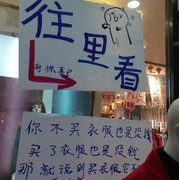 往里看
你不买衣服也是没钱
买了衣服也是没钱
那就说明买衣服官不